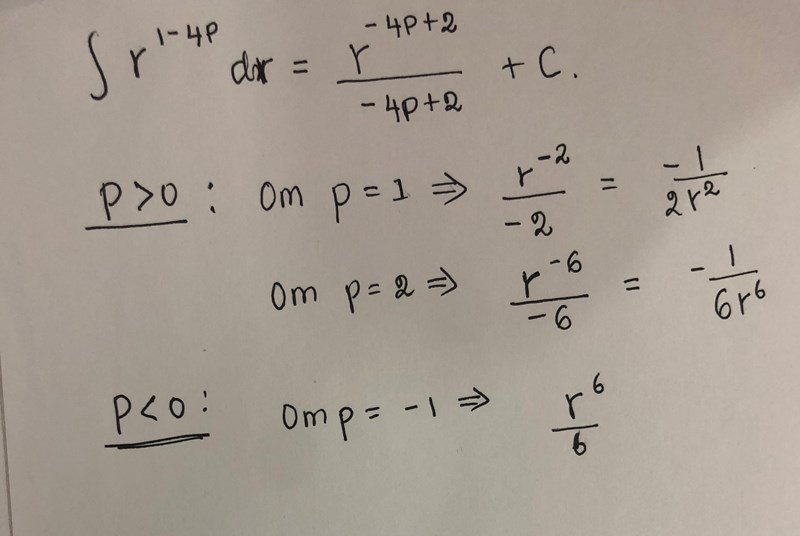 ∫ r^{1-4p} dr = \frac{r^{-4p+2}}{-4p+2} + C.
p>0: Om p = 1 ⇒ \frac{r^{-2}}{-2} = \frac{-1}{2r^2}
Om p = 2 ⇒ \frac{r^{-6}}{-6} = -\frac{1}{6r^6}
p<0: Om p = -1 ⇒ \frac{r^6}{6}